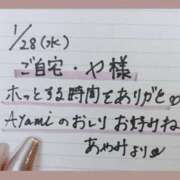 1/28(水)
ご自宅・や様
ホッとする時間をありがと♡
Ayamiのおしり お好きね
あやみより♡